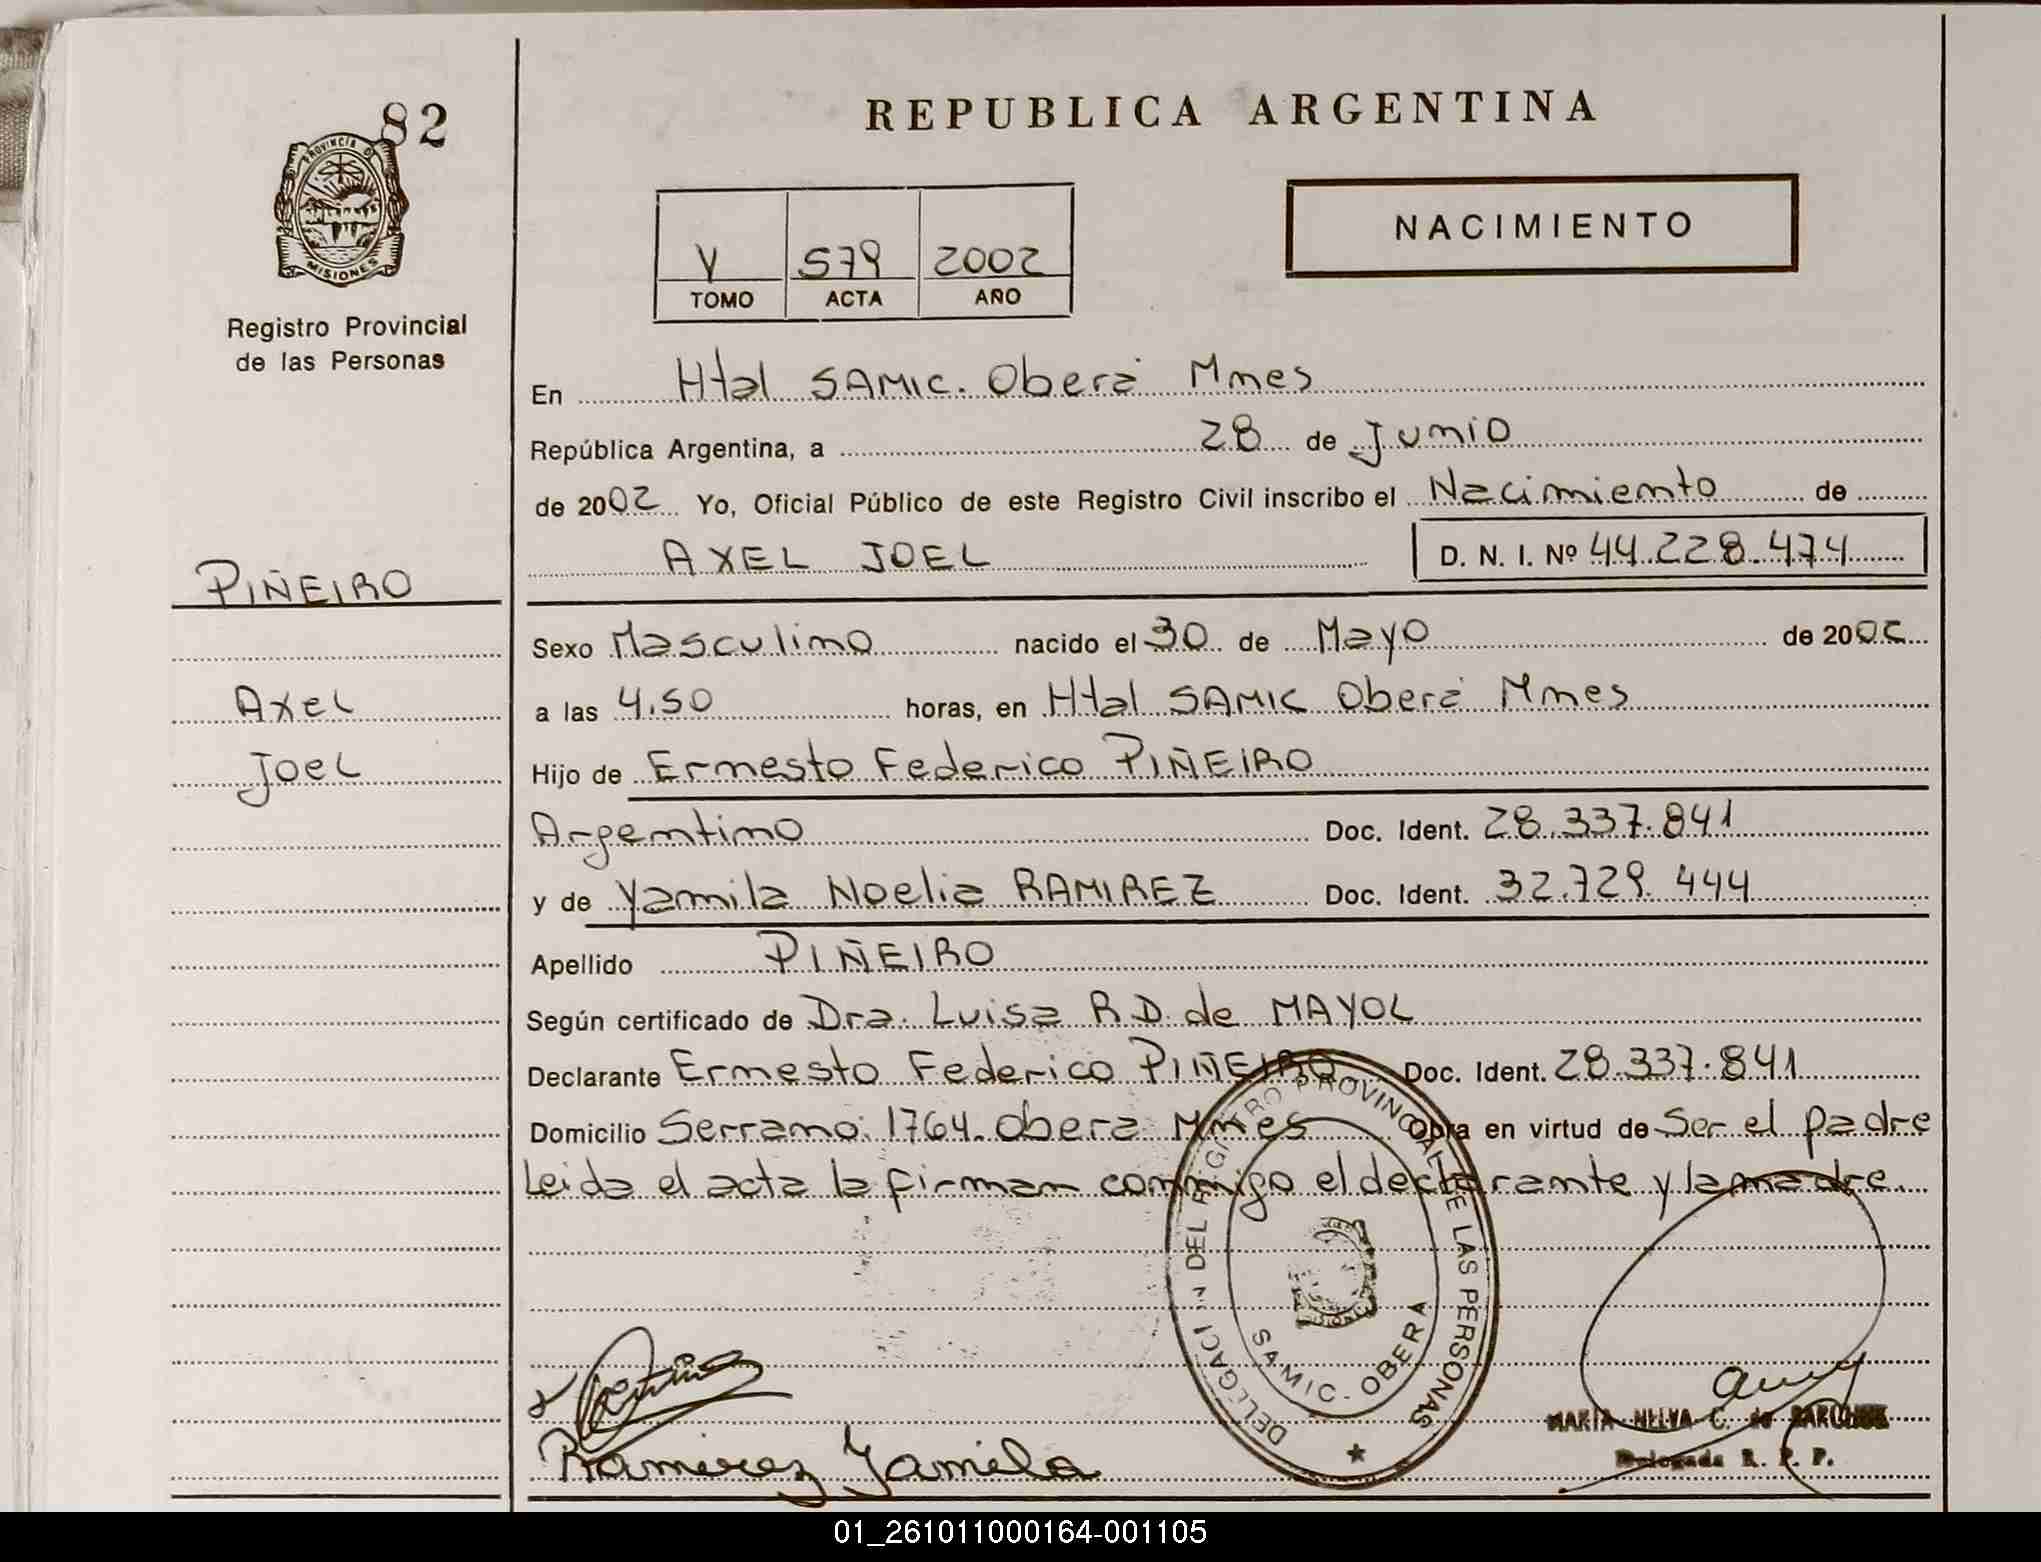 82
PROVINCIA DE
MISIONES
Registro Provincial
de las Personas
REPUBLICA ARGENTINA
V 579 2002
TOMO ACTA AÑO
NACIMIENTO
En Htal SAMIC. Oberá Mnes
República Argentina, a 28 de Junio
de 2002 Yo, Oficial Público de este Registro Civil inscribo el Nacimiento de
AXEL JOEL D. N. I. Nº 44.228.474
PIÑEIRO
Axel
Joel
Sexo Masculino nacido el 30 de Mayo de 2002
a las 4.50 horas, en Htal SAMIC Oberá Mnes
Hijo de Ernesto Federico PIÑEIRO
Argentino Doc. Ident. 28.337.841
y de Yamila Noelia RAMIREZ Doc. Ident. 32.729.444
Apellido PIÑEIRO
Según certificado de Dra. Luisa R.D. de MAYOL
Declarante Ernesto Federico PIÑEIRO Doc. Ident. 28.337.841
Domicilio Serrano. 1764. Obera Mnes Obra en virtud de Ser el padre
Leida el acta la firman conmigo el declarante y la madre.
DELEGACION DEL REGISTRO PROVINCIAL DE LAS PERSONAS
SAMIC. OBERA
Ramirez Yamila
MARIA C. de
Delegada R. P. P.
01_261011000164-001105